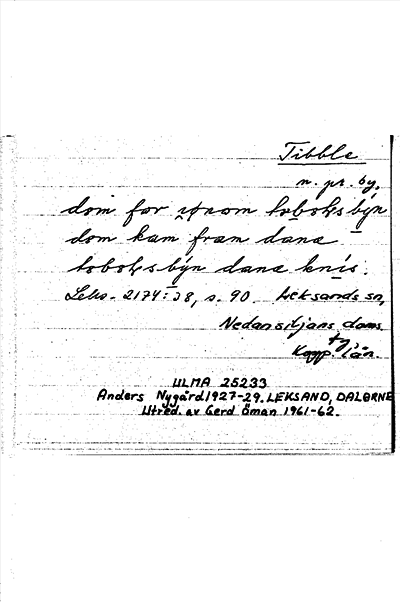 Tibble
n. pr. by.
dom for som toboksbýn
dom kam fram dana
toboksbýn dana knis.
Leks. 2174:38, s. 90 Leksands sn,
Nedansiljans doms.
Kopp. län.
ULMA 25233
Anders Nygård 1927-29. LEKSAND, DALARNE
Utred. av Gerd Öman 1961-62.